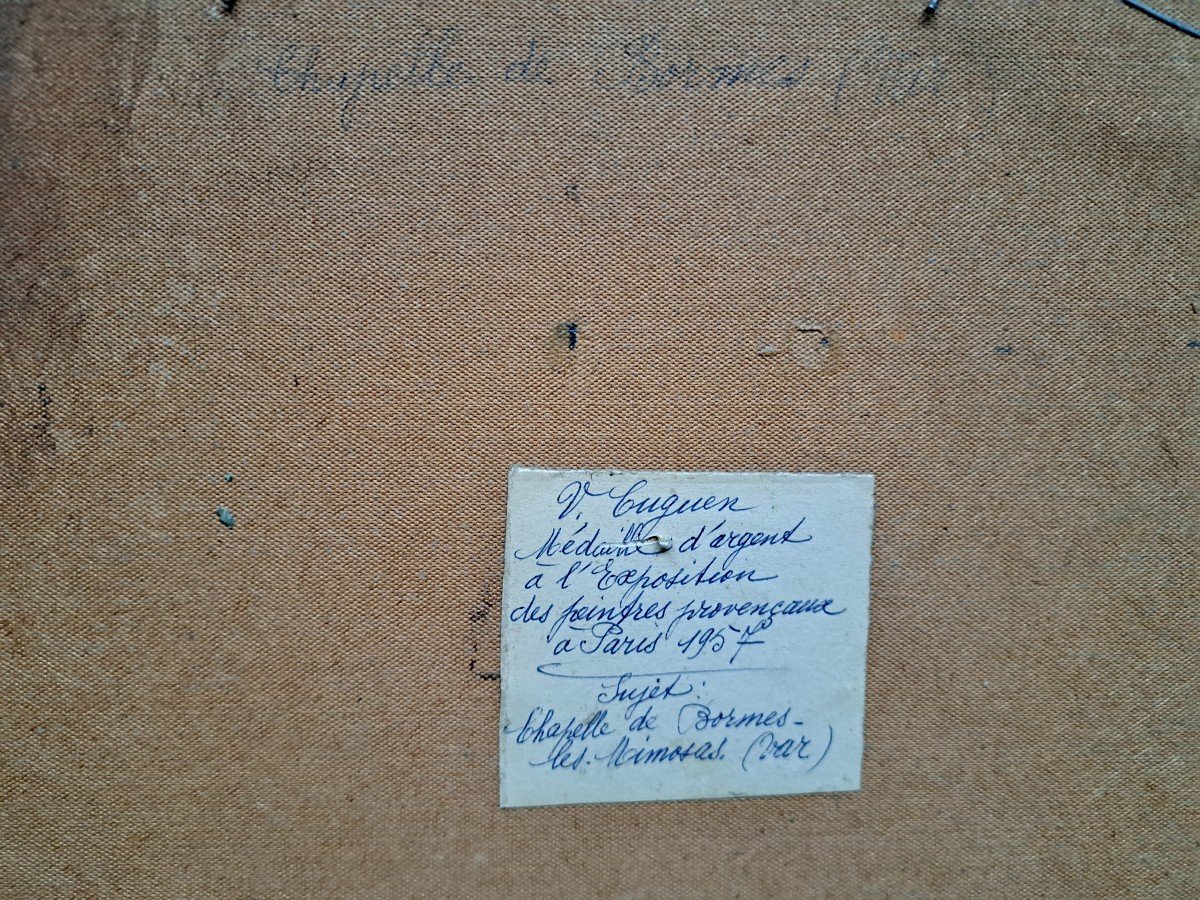 Chapelle de Bormes (Var)
V. Cuguen
Médaille d'argent
à l'Exposition
des peintres provençaux
à Paris 1957
Sujet:
Chapelle de Bormes-
les-Mimosas. (Var.)